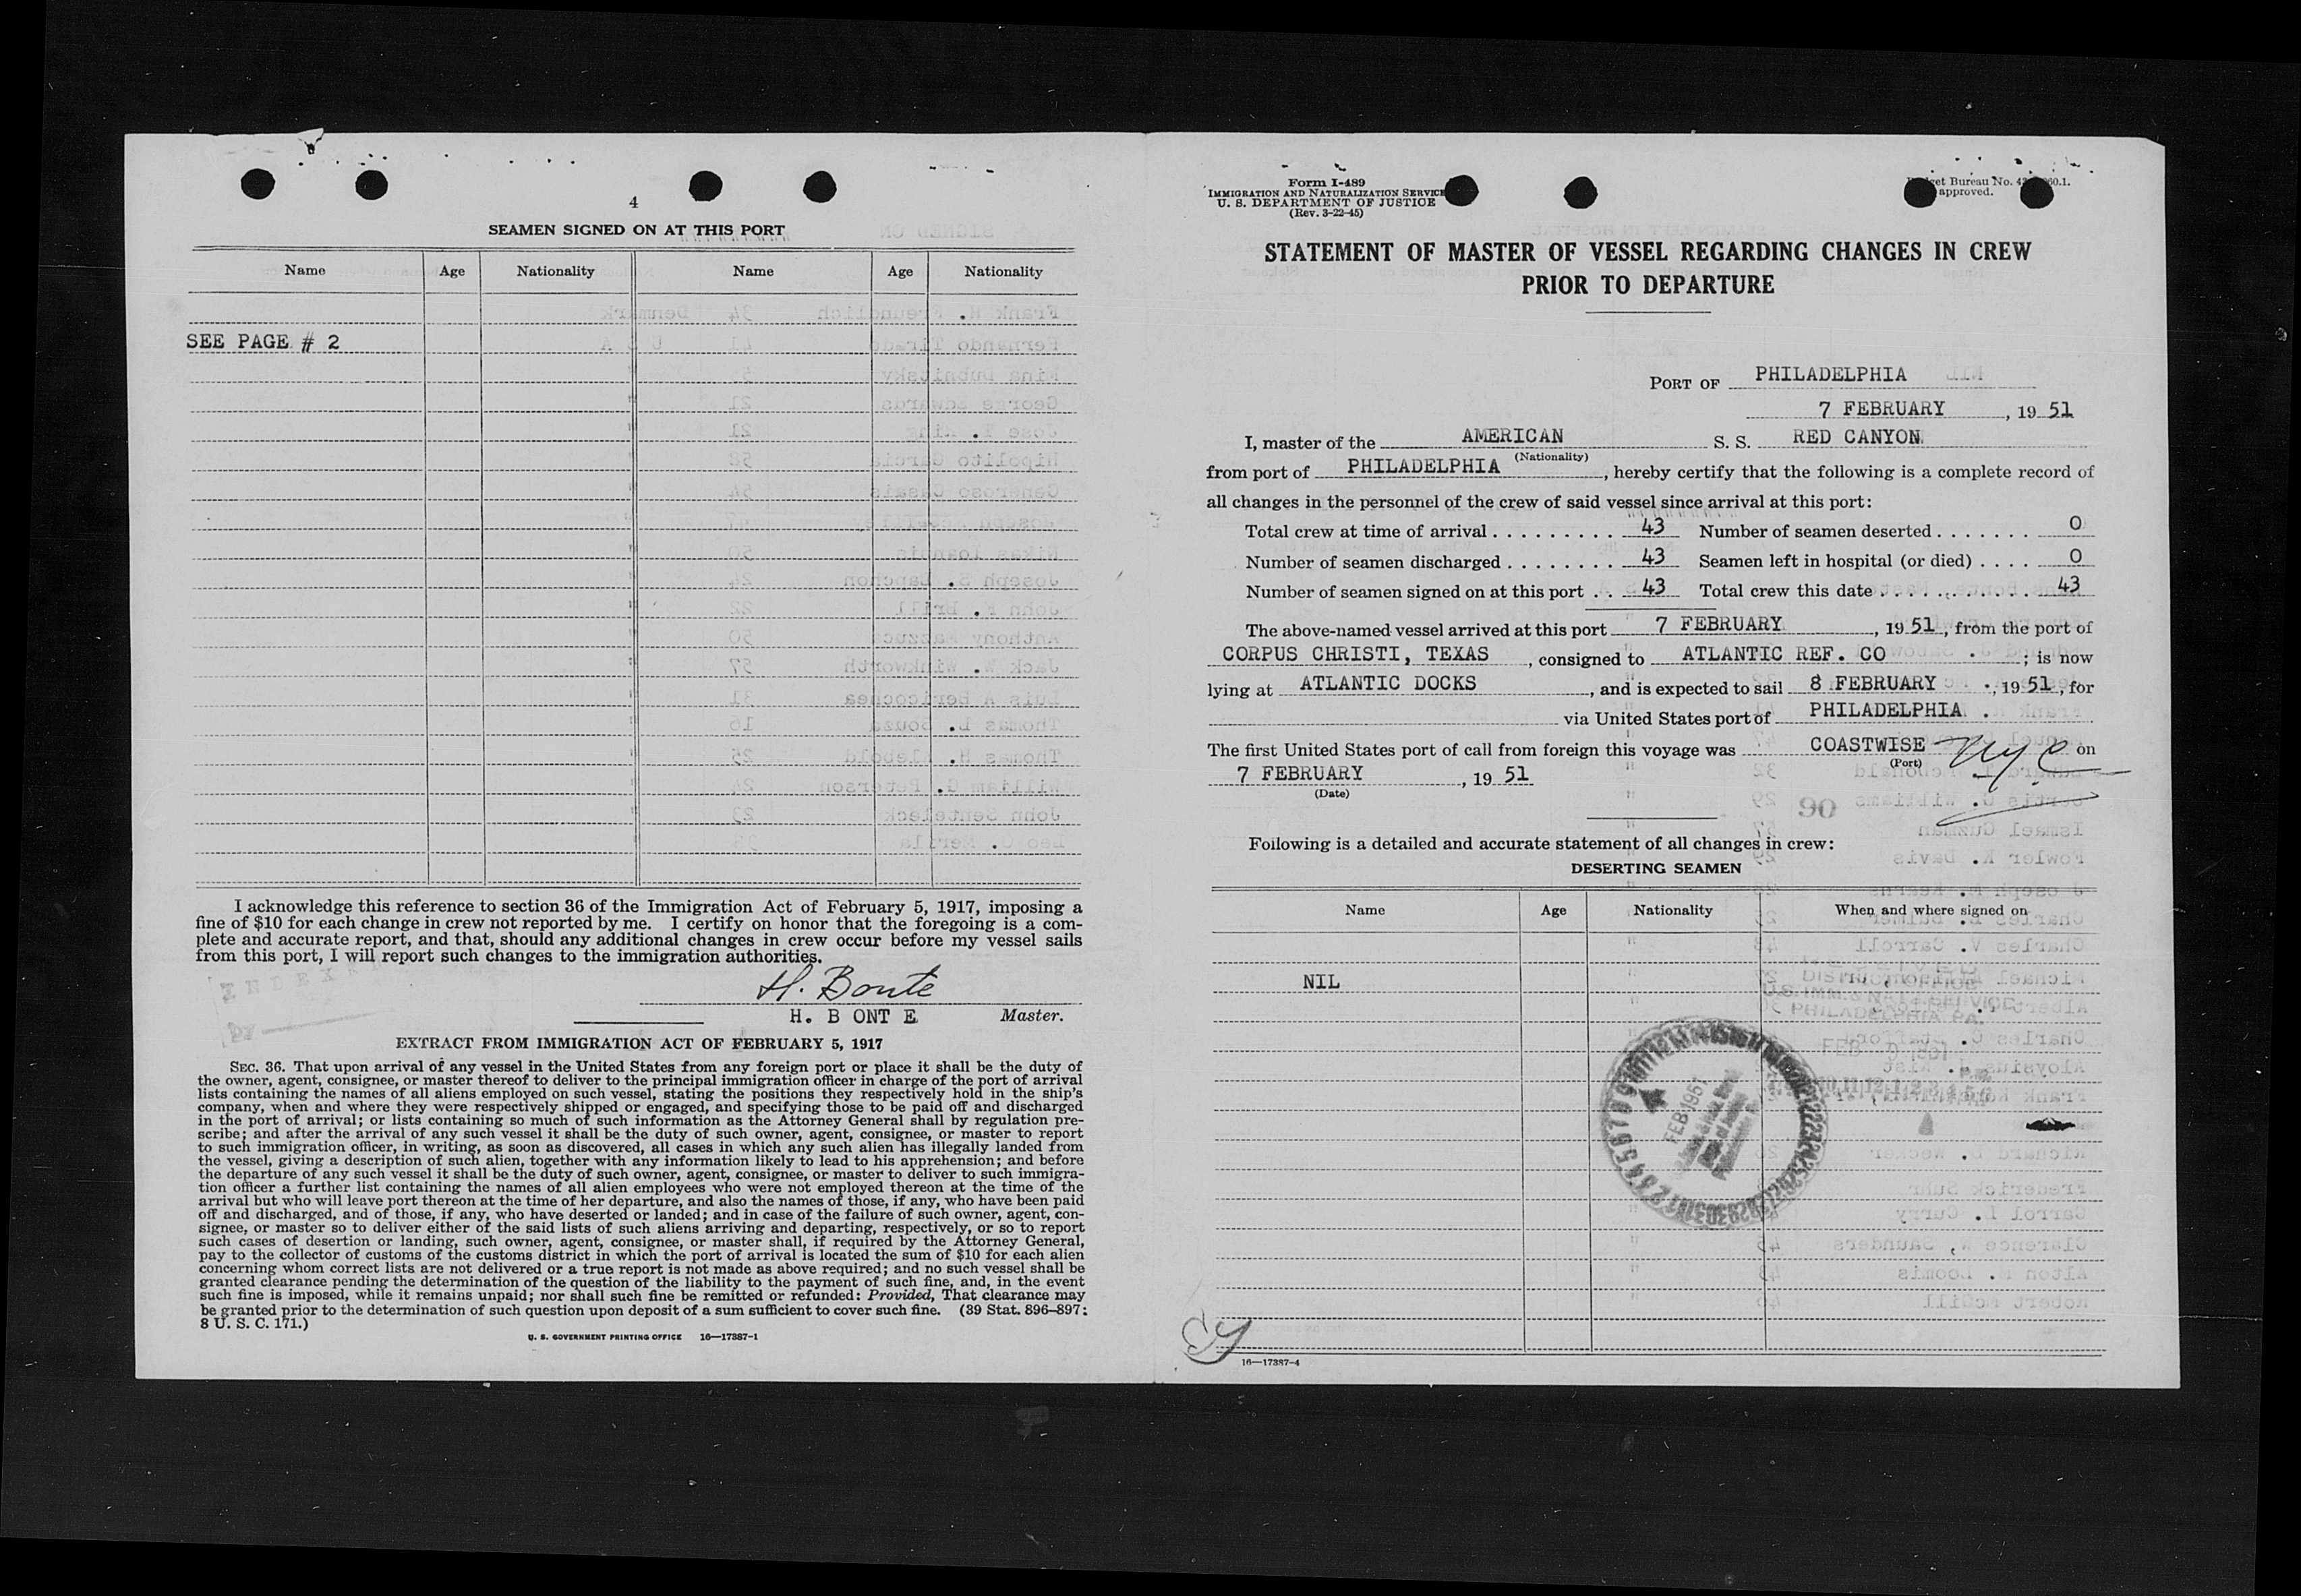 4
SEAMEN SIGNED ON AT THIS PORT
Name Age Nationality Name Age Nationality
SEE PAGE # 2
I acknowledge this reference to section 36 of the Immigration Act of February 5, 1917, imposing a
fine of $10 for each change in crew not reported by me. I certify on honor that the foregoing is a com-
plete and accurate report, and that, should any additional changes in crew occur before my vessel sails
from this port, I will report such changes to the immigration authorities.
INDEX
By
H. Bonte
H. B ONT E Master.
EXTRACT FROM IMMIGRATION ACT OF FEBRUARY 5, 1917
SEC. 36. That upon arrival of any vessel in the United States from any foreign port or place it shall be the duty of
the owner, agent, consignee, or master thereof to deliver to the principal immigration officer in charge of the port of arrival
lists containing the names of all aliens employed on such vessel, stating the positions they respectively hold in the ship's
company, when and where they were respectively shipped or engaged, and specifying those to be paid off and discharged
in the port of arrival; or lists containing so much of such information as the Attorney General shall by regulation pre-
scribe; and after the arrival of any such vessel it shall be the duty of such owner, agent, consignee, or master to report
to such immigration officer, in writing, as soon as discovered, all cases in which any such alien has illegally landed from
the vessel, giving a description of such alien, together with any information likely to lead to his apprehension; and before
the departure of any such vessel it shall be the duty of such owner, agent, consignee, or master to deliver to such immigra-
tion officer a further list containing the names of all alien employees who were not employed thereon at the time of the
arrival but who will leave port thereon at the time of her departure, and also the names of those, if any, who have been paid
off and discharged, and of those, if any, who have deserted or landed; and in case of the failure of such owner, agent, con-
signee, or master so to deliver either of the said lists of such aliens arriving and departing, respectively, or so to report
such cases of desertion or landing, such owner, agent, consignee, or master shall, if required by the Attorney General,
pay to the collector of customs of the customs district in which the port of arrival is located the sum of $10 for each alien
concerning whom correct lists are not delivered or a true report is not made as above required; and no such vessel shall be
granted clearance pending the determination of the question of the liability to the payment of such fine, and, in the event
such fine is imposed, while it remains unpaid; nor shall such fine be remitted or refunded: Provided, That clearance may
be granted prior to the determination of such question upon deposit of a sum sufficient to cover such fine. (39 Stat. 896–897;
8 U. S. C. 171.)
U. S. GOVERNMENT PRINTING OFFICE 16—17387-1
Form I-489
IMMIGRATION AND NATURALIZATION SERVICE
U. S. DEPARTMENT OF JUSTICE
(Rev. 3-22-45)
Bureau No.
approved.
STATEMENT OF MASTER OF VESSEL REGARDING CHANGES IN CREW
PRIOR TO DEPARTURE
PORT OF PHILADELPHIA
7 FEBRUARY, 19 51
I, master of the AMERICAN S. S. RED CANYON
(Nationality)
from port of PHILADELPHIA, hereby certify that the following is a complete record of
all changes in the personnel of the crew of said vessel since arrival at this port:
Total crew at time of arrival . . . . . . . . . 43 Number of seamen deserted . . . . . . . 0
Number of seamen discharged . . . . . . . . 43 Seamen left in hospital (or died) . . . . 0
Number of seamen signed on at this port . . 43 Total crew this date . . . . . . . . . . . . 43
The above-named vessel arrived at this port 7 FEBRUARY, 19 51, from the port of
CORPUS CHRISTI, TEXAS, consigned to ATLANTIC REF. CO; is now
lying at ATLANTIC DOCKS, and is expected to sail 8 FEBRUARY, 19 51, for
via United States port of PHILADELPHIA
The first United States port of call from foreign this voyage was COASTWISE NYC on
(Port)
7 FEBRUARY, 19 51
(Date)
90
Following is a detailed and accurate statement of all changes in crew:
DESERTING SEAMEN
Name Age Nationality When and where signed on
NIL
FEB 1951
16—17387-4